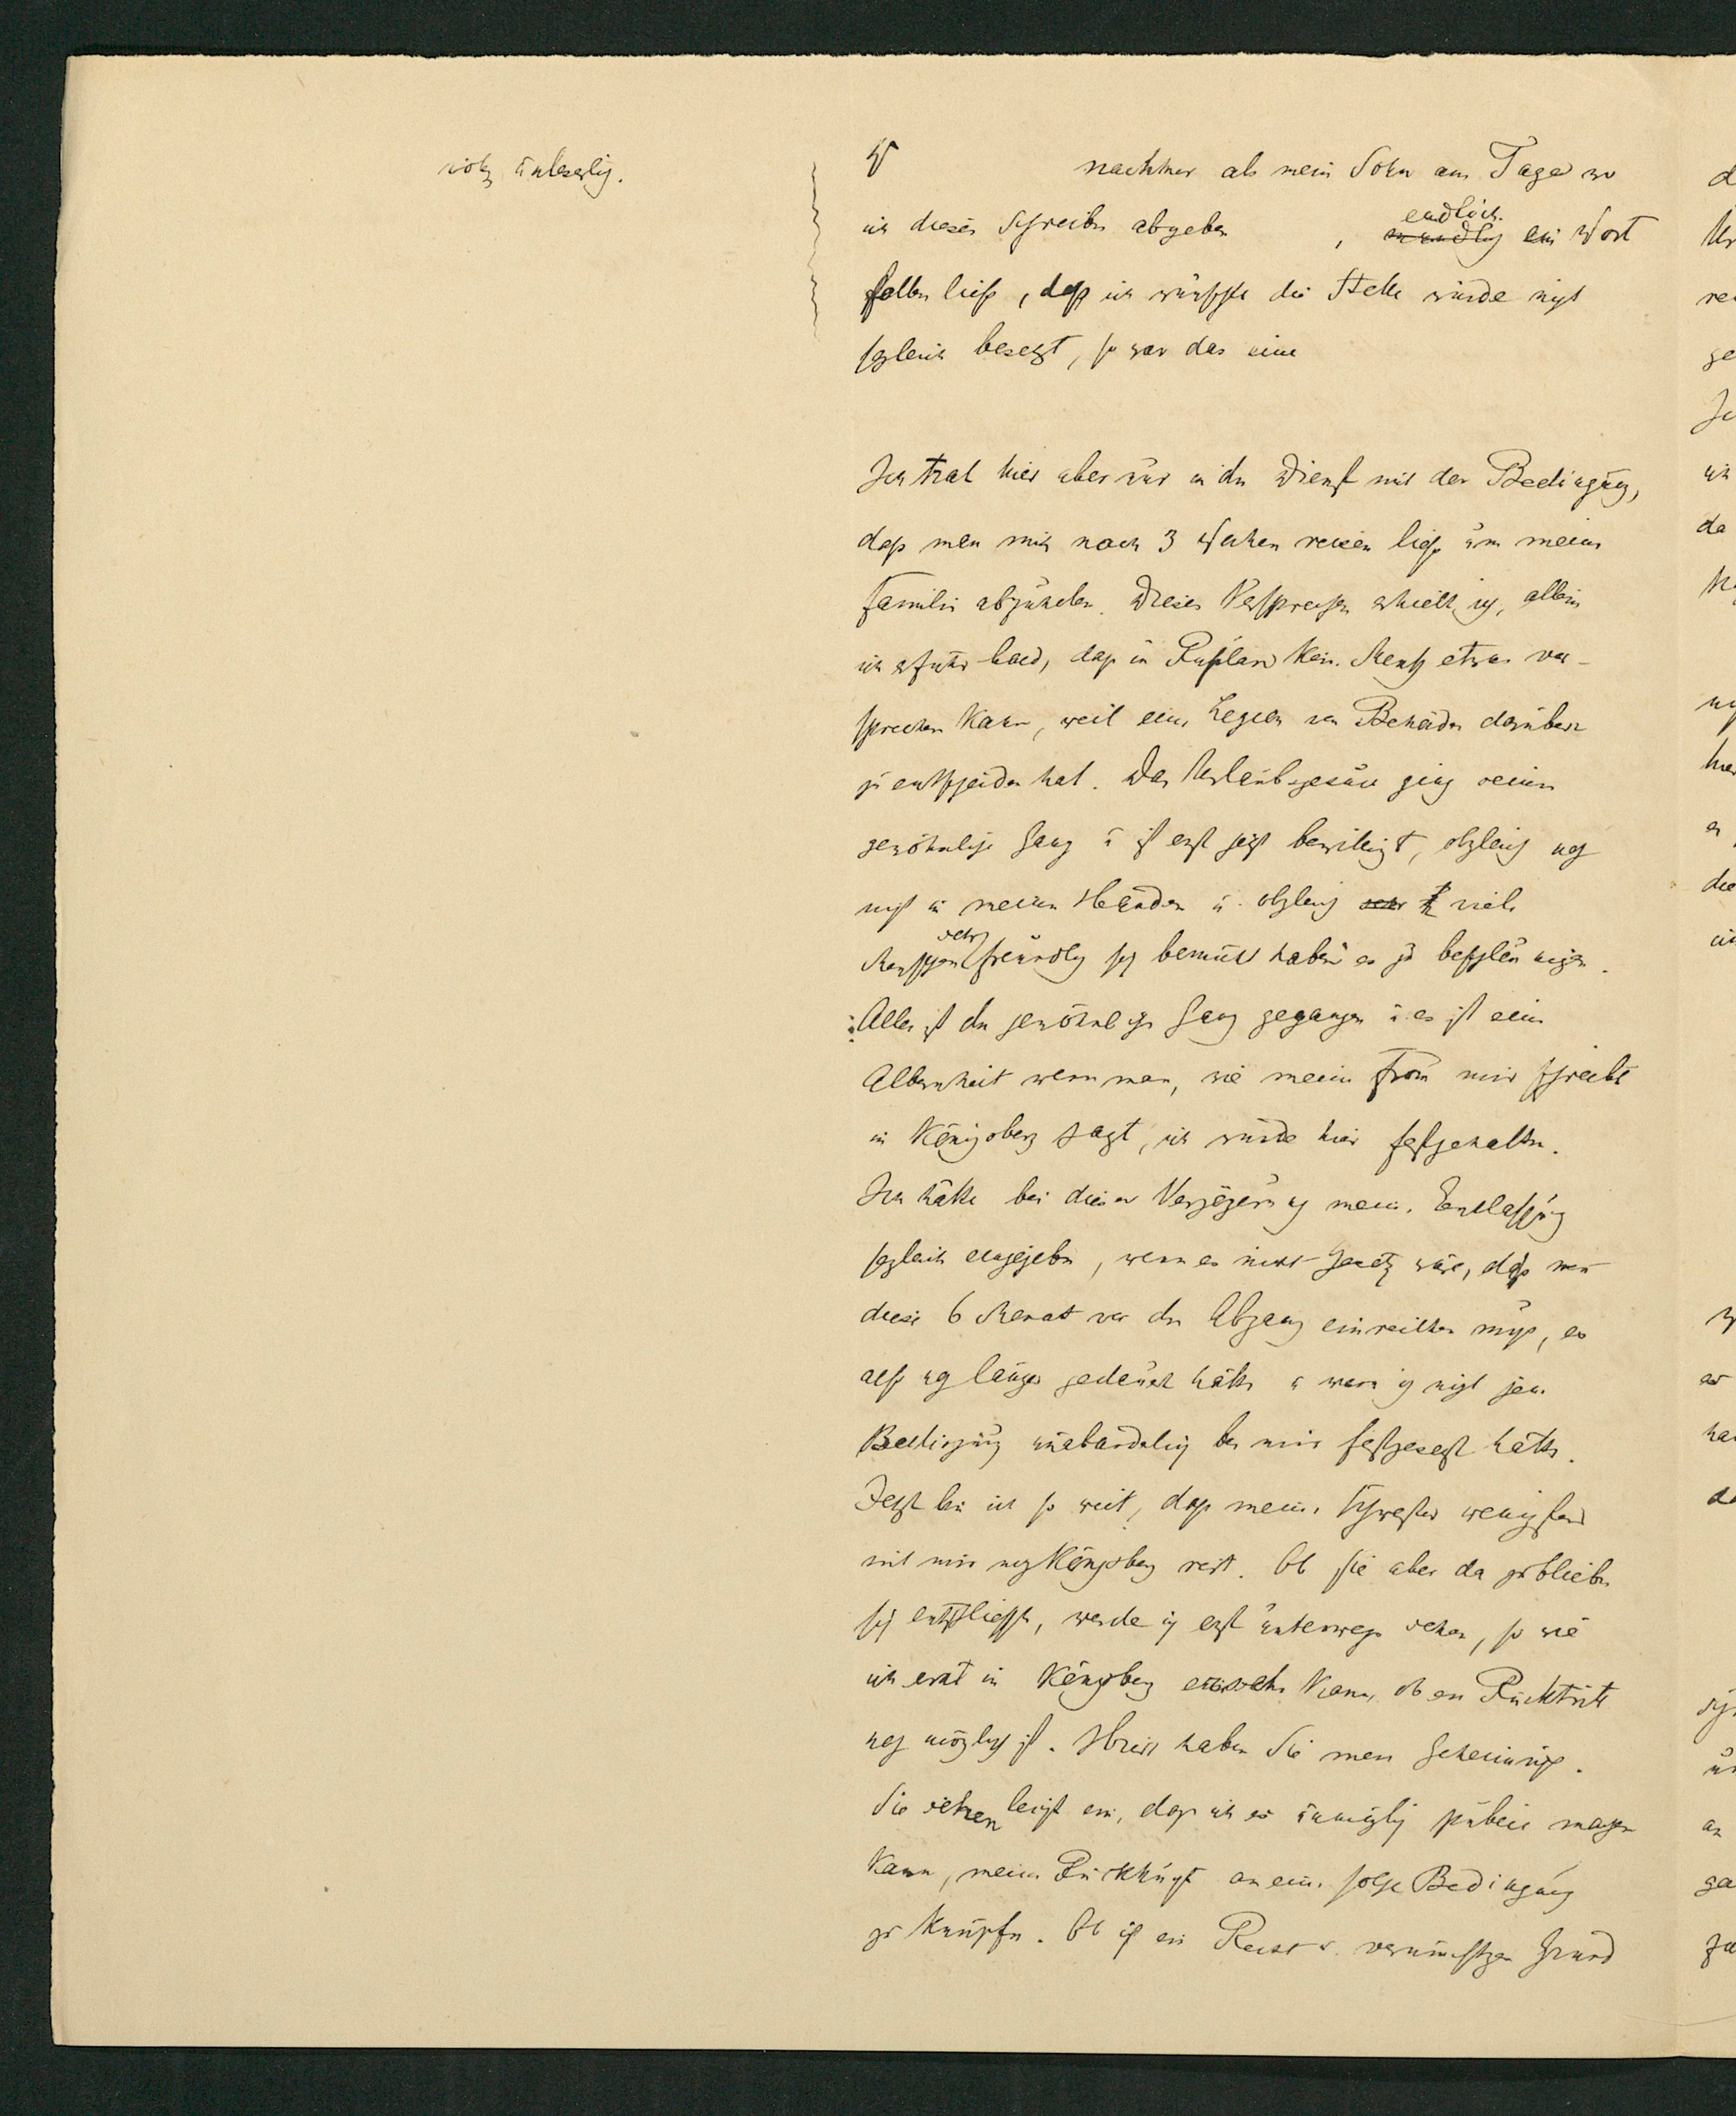 unleserlich.
nachher als mein Sohn am Tage wo
ich dieses Schreiben abgeben , endlich
mündlich ein Wort
fallen ließ, daß ich wünschte die Stelle würde nicht
sogleich besetzt, so war das eine
Ich trat hier aber nur in den Dienst mit der Bedingung,
daß man mich nach 3 Wochen reisen ließ um meine
Familie abzuholen. Dieses Versprechen erhielt ich, allein
ich erfuhr bald, daß in Rußland kein Mensch etwas ver-
sprechen kann, weil eine Legion von Behörden darüber
zu entscheiden hat. Das Urlaubsgesuch ging seinen
gewöhnliche Gang u ist erst jetzt bewilligt, obgleich noch
nicht in meinen Händen u. obgleich sehr viele
Menschen sehr freundlich sich bemüht haben es zu beschleunigen.
Alles ist den gewöhnlichen Gang gegangen u. es ist eine
Albernheit wenn man, wie meine Frau mir schreibt
in Königsberg sagt, ich würde hier festgehalten.
Ich hätte bei dieser Verzögerung meine Entlassung
sogleich eingegeben, wenn es nicht Gesetz wäre, daß man
diese 6 Monat vor dem Abgang einreichen muß, es
also noch länger gedauert hätte u wenn ich nicht jene
Bedingung bei mir festgesetzt hätte.
Jetzt bin ich so weit, daß meine Schwester wenigstens
mit mir nach Königsberg reist. Ob sie aber da zu bleiben
sich entschließt, werde ich erst unterwegs sehen, so wie
ich erst in Königsberg ersehen kann, ob ein Rücktritt
noch möglich ist. Hier haben Sie mein Geheimniß.
Sie sehen leicht ein, daß ich es unmöglich publik machen
kann, meine Rückkunft an eine solche Bedingung
zu knüpfen. Ob ich ein Recht u. vernünftigen Grund